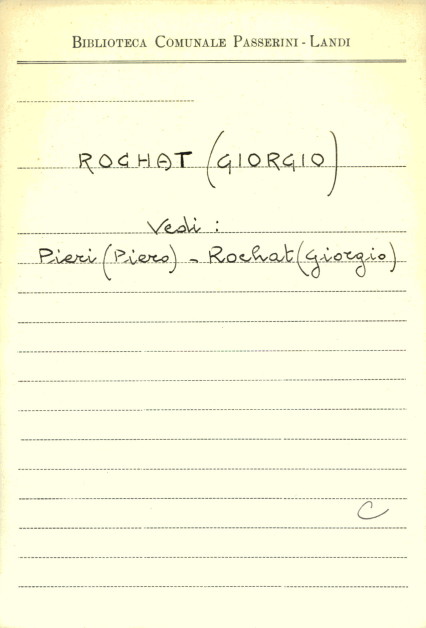 BIBLIOTECA COMUNALE PASSERINI - LANDI
ROCHAT (GIORGIO)
Vedi :
Pieri (Piero) - Rochat (Giorgio)
C